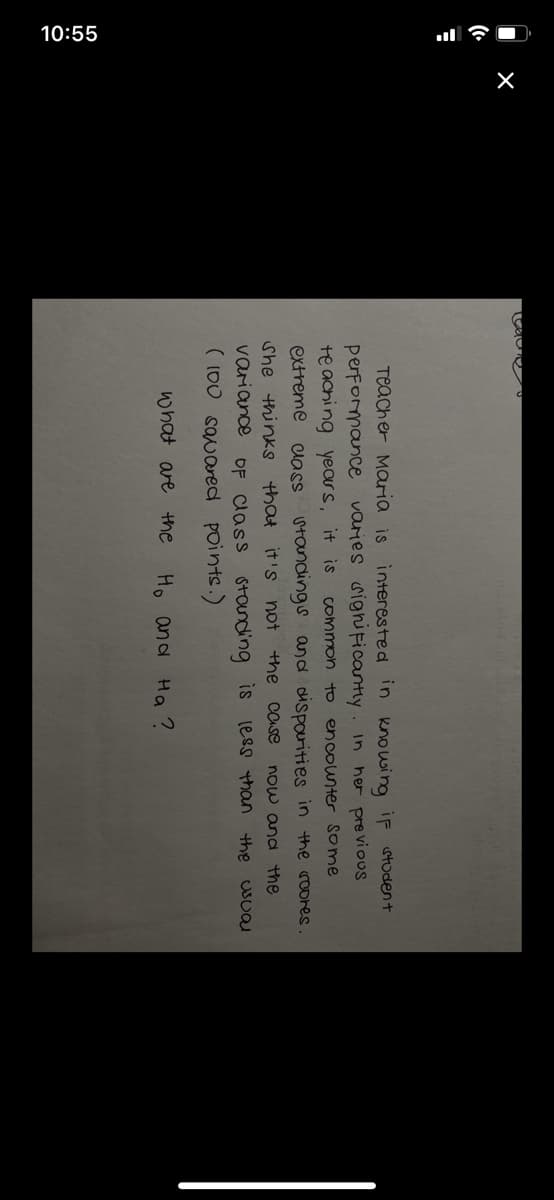 10:55
Teacher Maria is interested in knowing if student
performance varies significantly. In her previous
teaching years, it is common to encounter some
extreme class standings and disparities in the scores.
She thinks that it's not the case now and the
variance of class standing is less than the usual
(100 squared points.)
What are the H₀ and Ha?